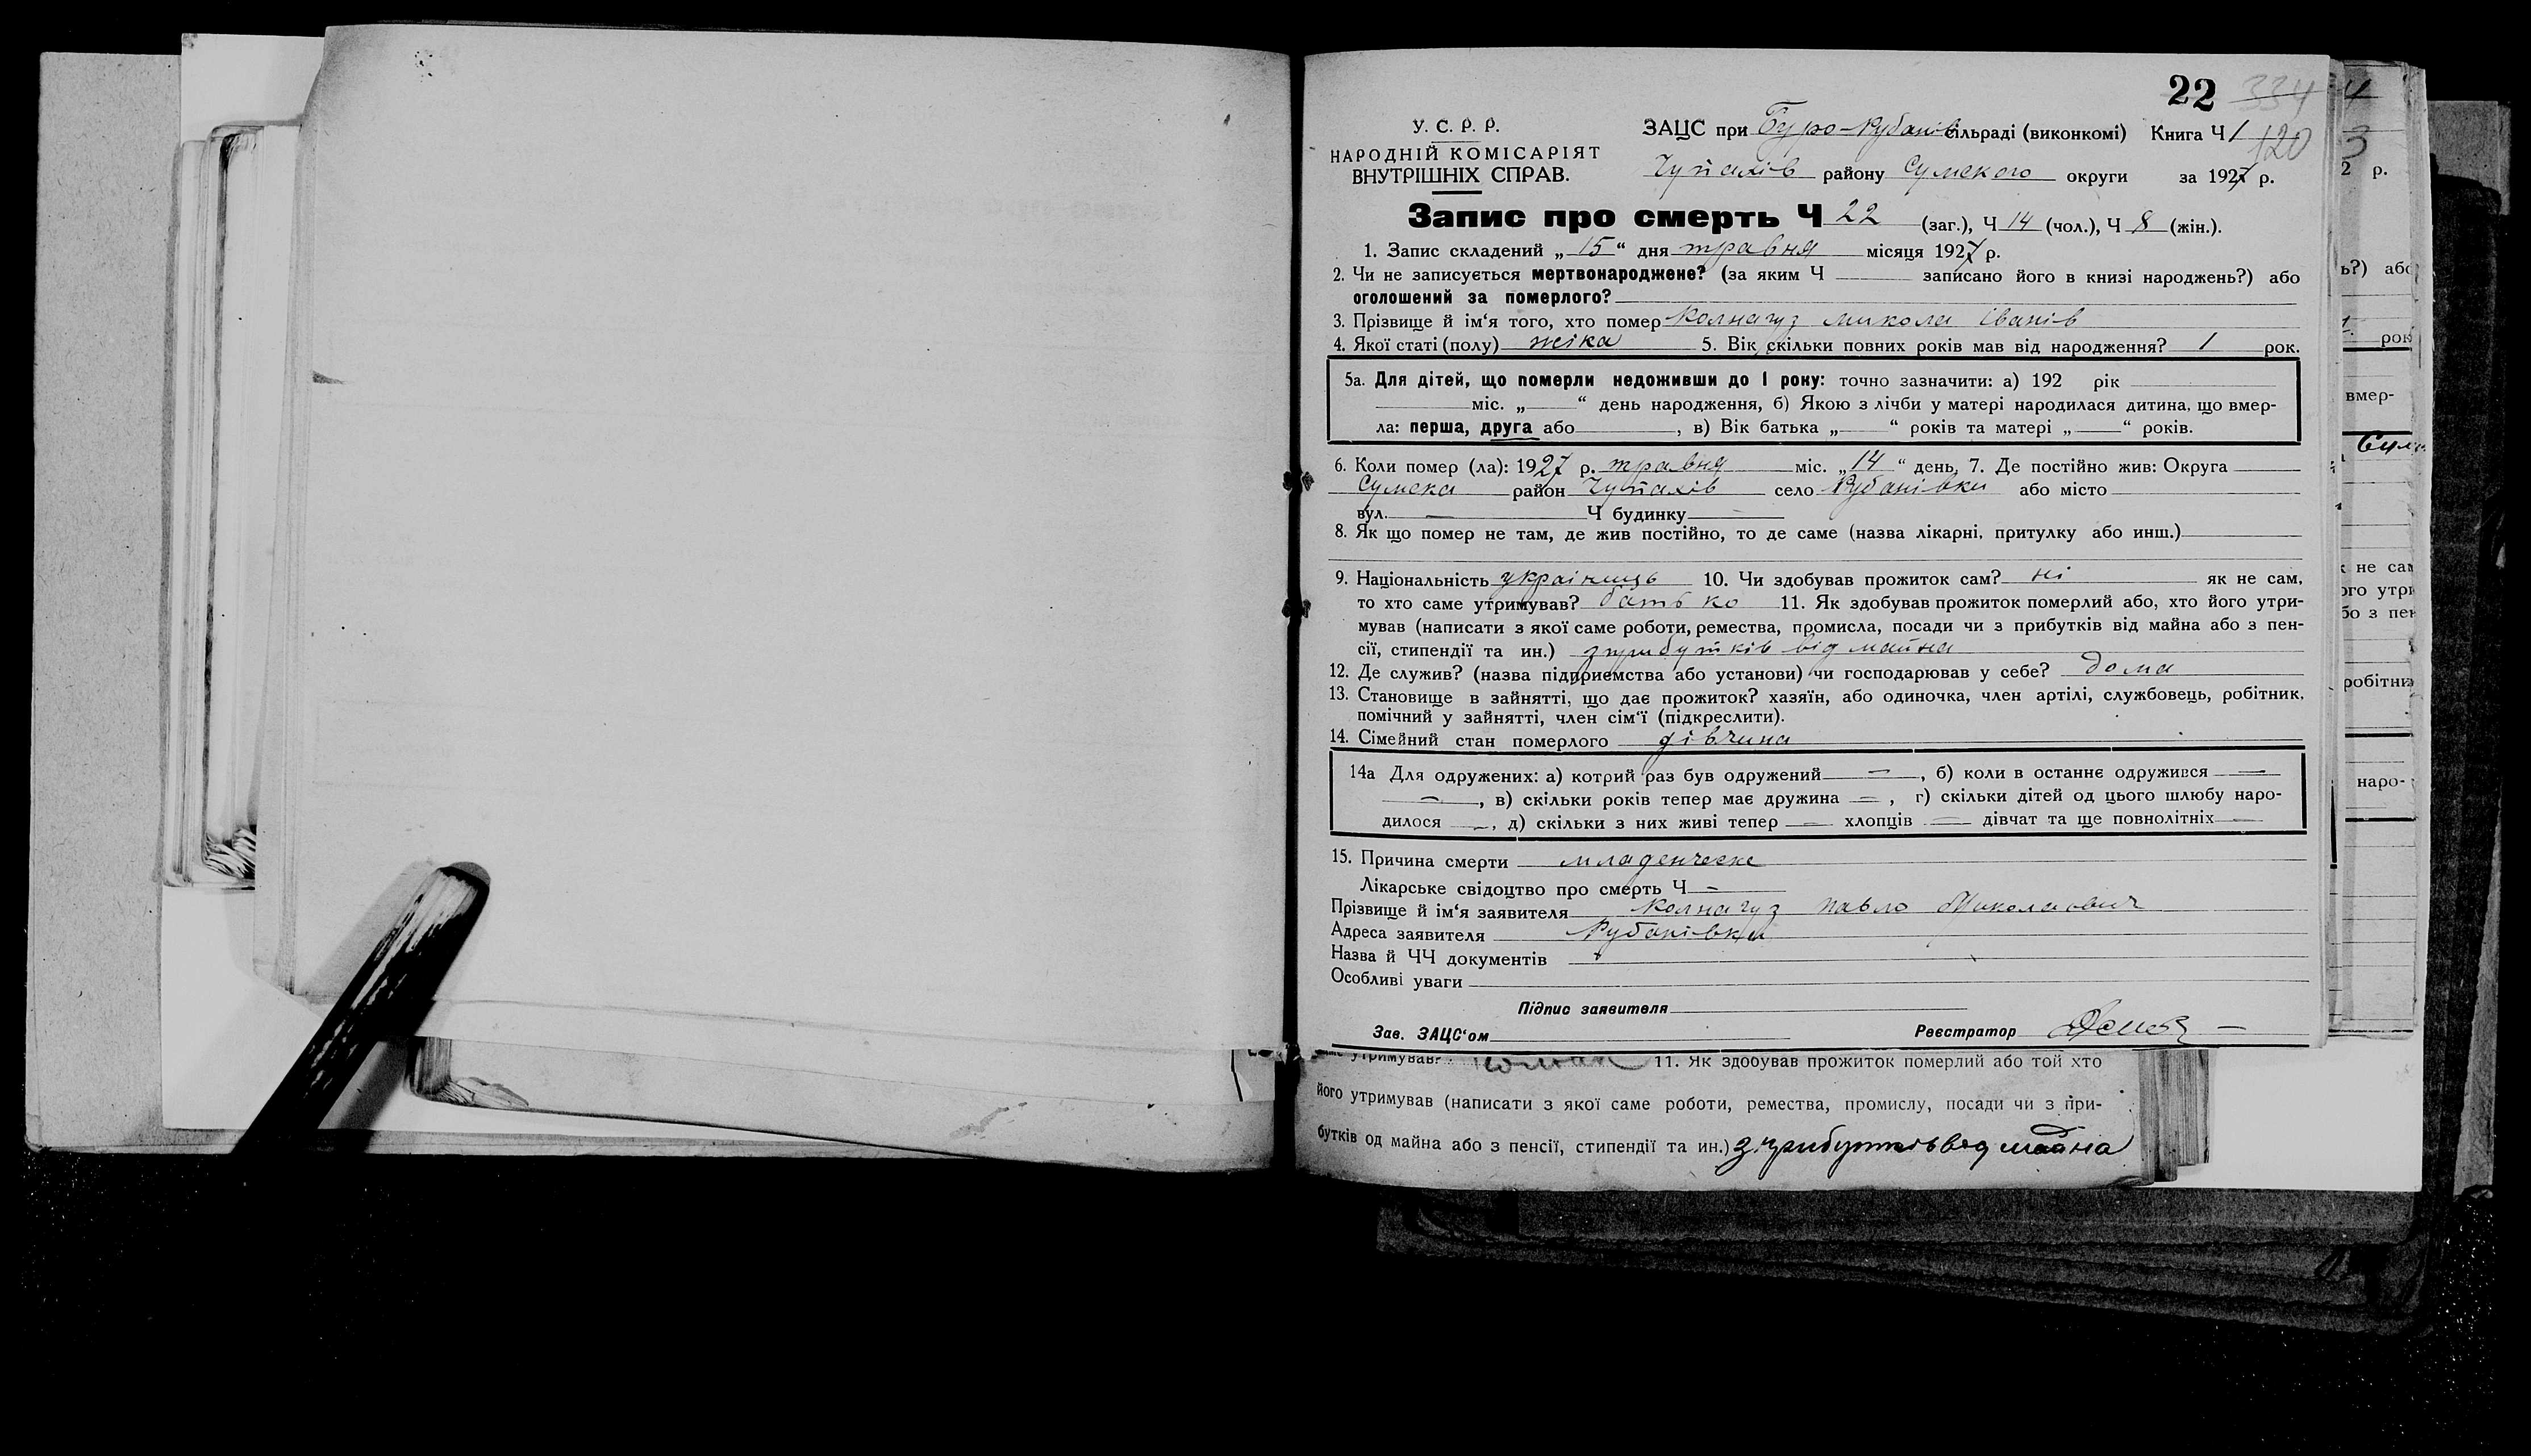 22 334
120
У. С. Р. Р.
НАРОДНІЙ КОМІСАРІЯТ
ВНУТРІШНІХ СПРАВ.
ЗАЦС при Буро-Рубанів сільраді (виконкомі) Книга Ч 1
Чупахів району Сумского округи за 1927 р.
Запис про смерть Ч 22 (заг.), Ч 14 (чол.), Ч 8 (жін.).
1. Запис складений „ 15 “ дня травня місяця 1927 р.
2. Чи не записується мертвонароджене? (за яким Ч записано його в книзі народжень?) або
оголошений за померлого?
3. Прізвище й ім‘я того, хто помер Колнагуз микола іванів
4. Якої статі (полу) жіка 5. Вік скільки повних років мав від народження? 1 рок.
5а. Для дітей, що померли недоживши до 1 року: точно зазначити: а) 192 рік
міс. „ “ день народження, б) Якою з лічби у матері народилася дитина, що вмер-
ла: перша, друга або , в) Вік батька „ “ років та матері „ “ років.
6. Коли помер (ла): 1927 р. травня міс. „14 “ день, 7. Де постійно жив: Округа
Сумска район Чупахів село Рубанівки або місто
вул. — Ч будинку
8. Як що помер не там, де жив постійно, то де саме (назва лікарні, притулку або инш.)
9. Національність українць 10. Чи здобував прожиток сам? ні як не сам,
то хто саме утримував? батько 11. Як здобував прожиток померлий або, хто його утри-
мував (написати з якої саме роботи, ремества, промисла, посади чи з прибутків від майна або з пен-
сії, стипендії та ин.) з прибутків від майна
12. Де служив? (назва підприємства або установи) чи господарював у себе? дома
13. Становище в зайнятті, що дає прожиток? хазяїн, або одиночка, член артілі, службовець, робітник,
помічний у зайнятті, член сім‘ї (підкреслити).
14. Сімейний стан померлого дівчина
14а Для одружених: а) котрий раз був одружений — , б) коли в останнє одружився —
— , в) скільки років тепер має дружина — , г) скільки дітей од цього шлюбу наро-
дилося — , д) скільки з них живі тепер — хлопців — дівчат та ще повнолітніх —
15. Причина смерти младенческе
Лікарське свідоцтво про смерть Ч —
Прізвище й ім‘я заявителя Колнагуз павло Миколаович
Адреса заявителя Рубанівки
Назва й ЧЧ документів
Особливі уваги
Підпис заявителя
Зав. ЗАЦС‘ом Реєстратор
утримував? 11. Як здобував прожиток померлий або той хто
його утримував (написати з якої саме роботи, ремества, промислу, посади чи з при-
бутків од майна або з пенсії, стипендії та ин.) з прибутків від майна